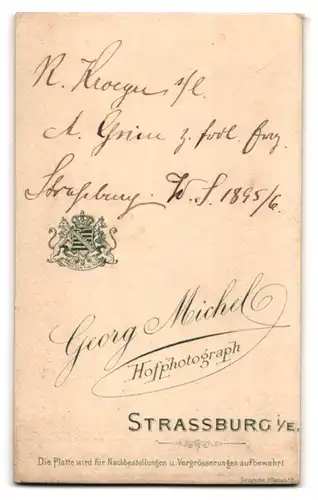 R. Kroeger s/l.
A. Grim z. frdl. Erg.
Strassburg. W. S. 1895/6.
Georg Michel
Hofphotograph
STRASSBURG i/E.
Die Platte wird für Nachbestellungen u. Vergrösserungen aufbewahrt